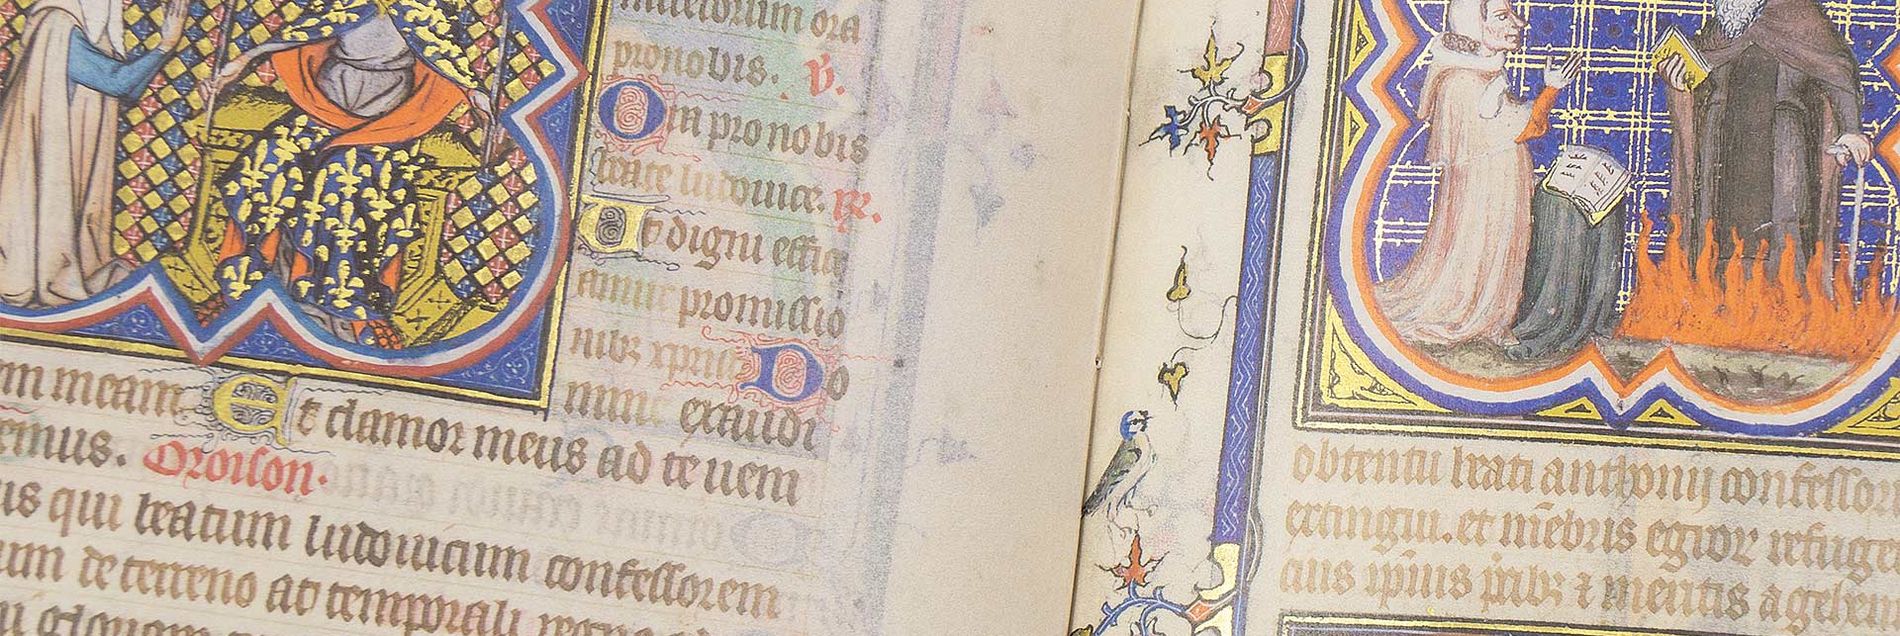 ora
pronobis. V.
Ora pronobis
beate ludouice. R.
Ut digni effici
amur promissio
nibz xpristi Do
mine exaudi
em meam Et clamor meus ad te ueni
emus. Oroison.
us qui beatum ludouicum confessorem
um de terreno ac temporali
obtentu beati anthonij confessor
extingui. et membris egror refrige
cius ipius prcibz & meritis a gehen